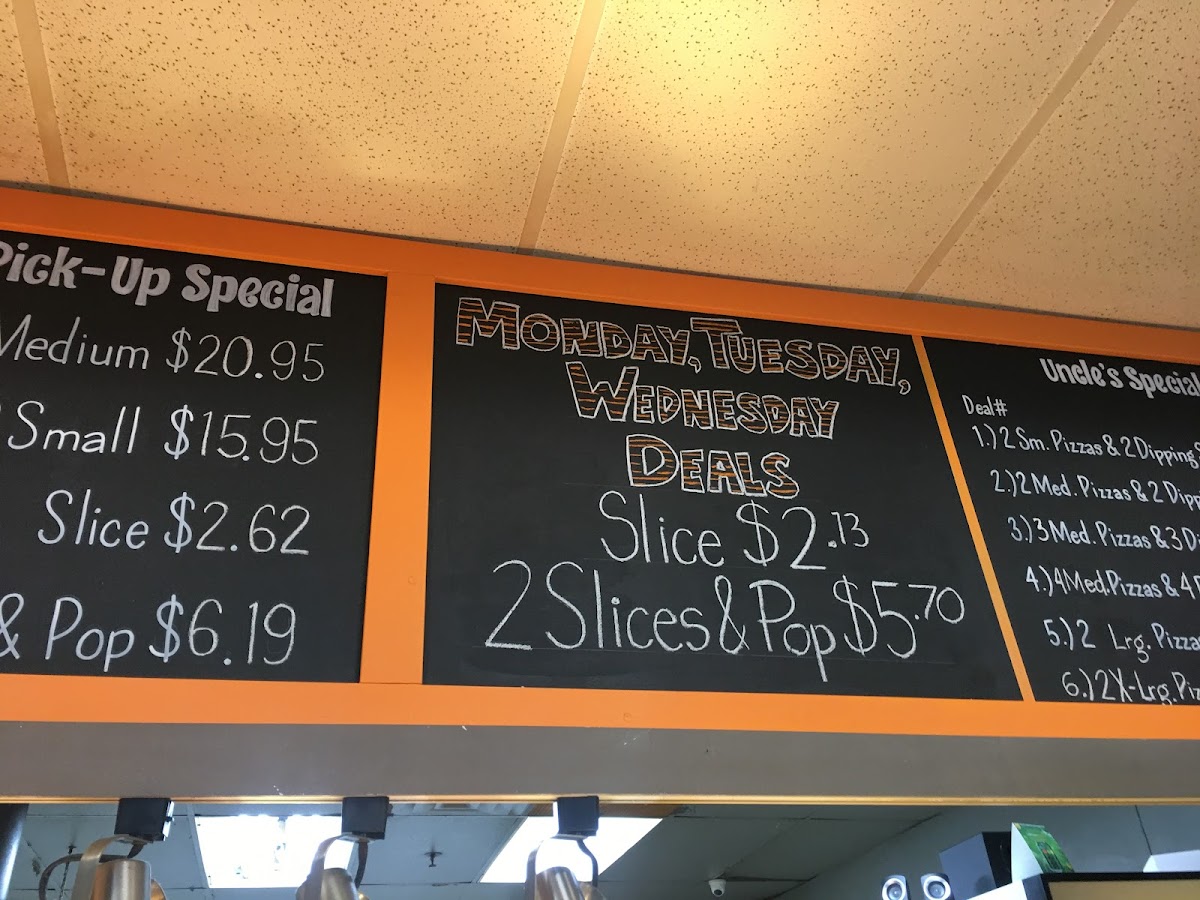 Pick-Up Special
Medium $20.95
Small $15.95
Slice $2.62
& Pop $6.19
MONDAY, TUESDAY,
WEDNESDAY
DEALS
Slice $2.13
2 Slices & Pop $5.70
Uncle's Special
Deal#
1.) 2 Sm. Pizzas & 2 Dipping
2.) 2 Med. Pizzas & 2 Dipp
3.) 3 Med. Pizzas & 3 Di
4.) 4 Med. Pizzas & 4
5.) 2 Lrg. Pizza
6.) 2 X-Lrg. Piz